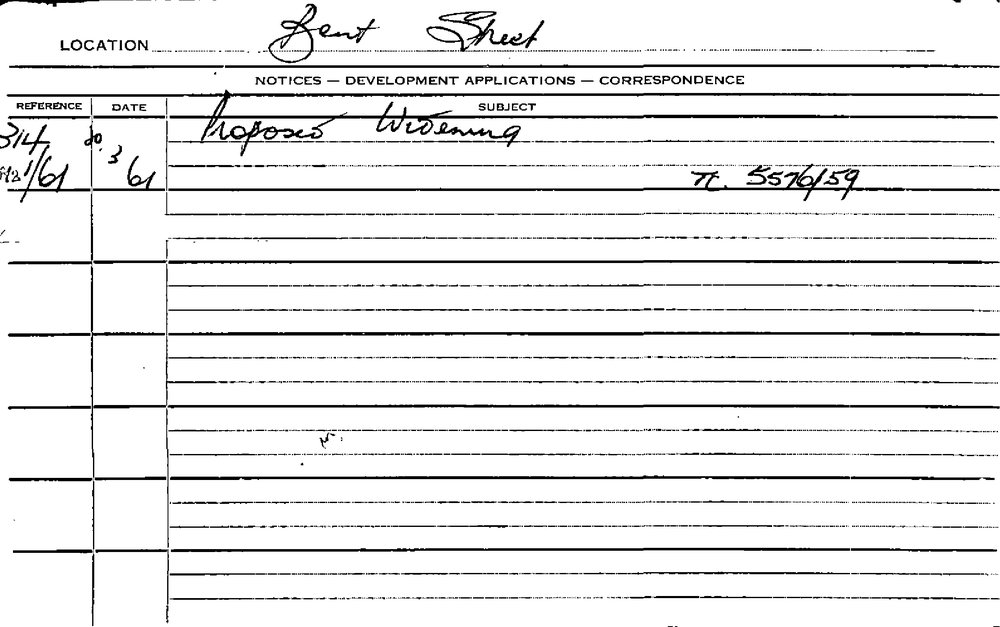 LOCATION Bent Street
NOTICES — DEVELOPMENT APPLICATIONS — CORRESPONDENCE
REFERENCE DATE SUBJECT
314 Proposed Widening
1/61 3 61 5576/59